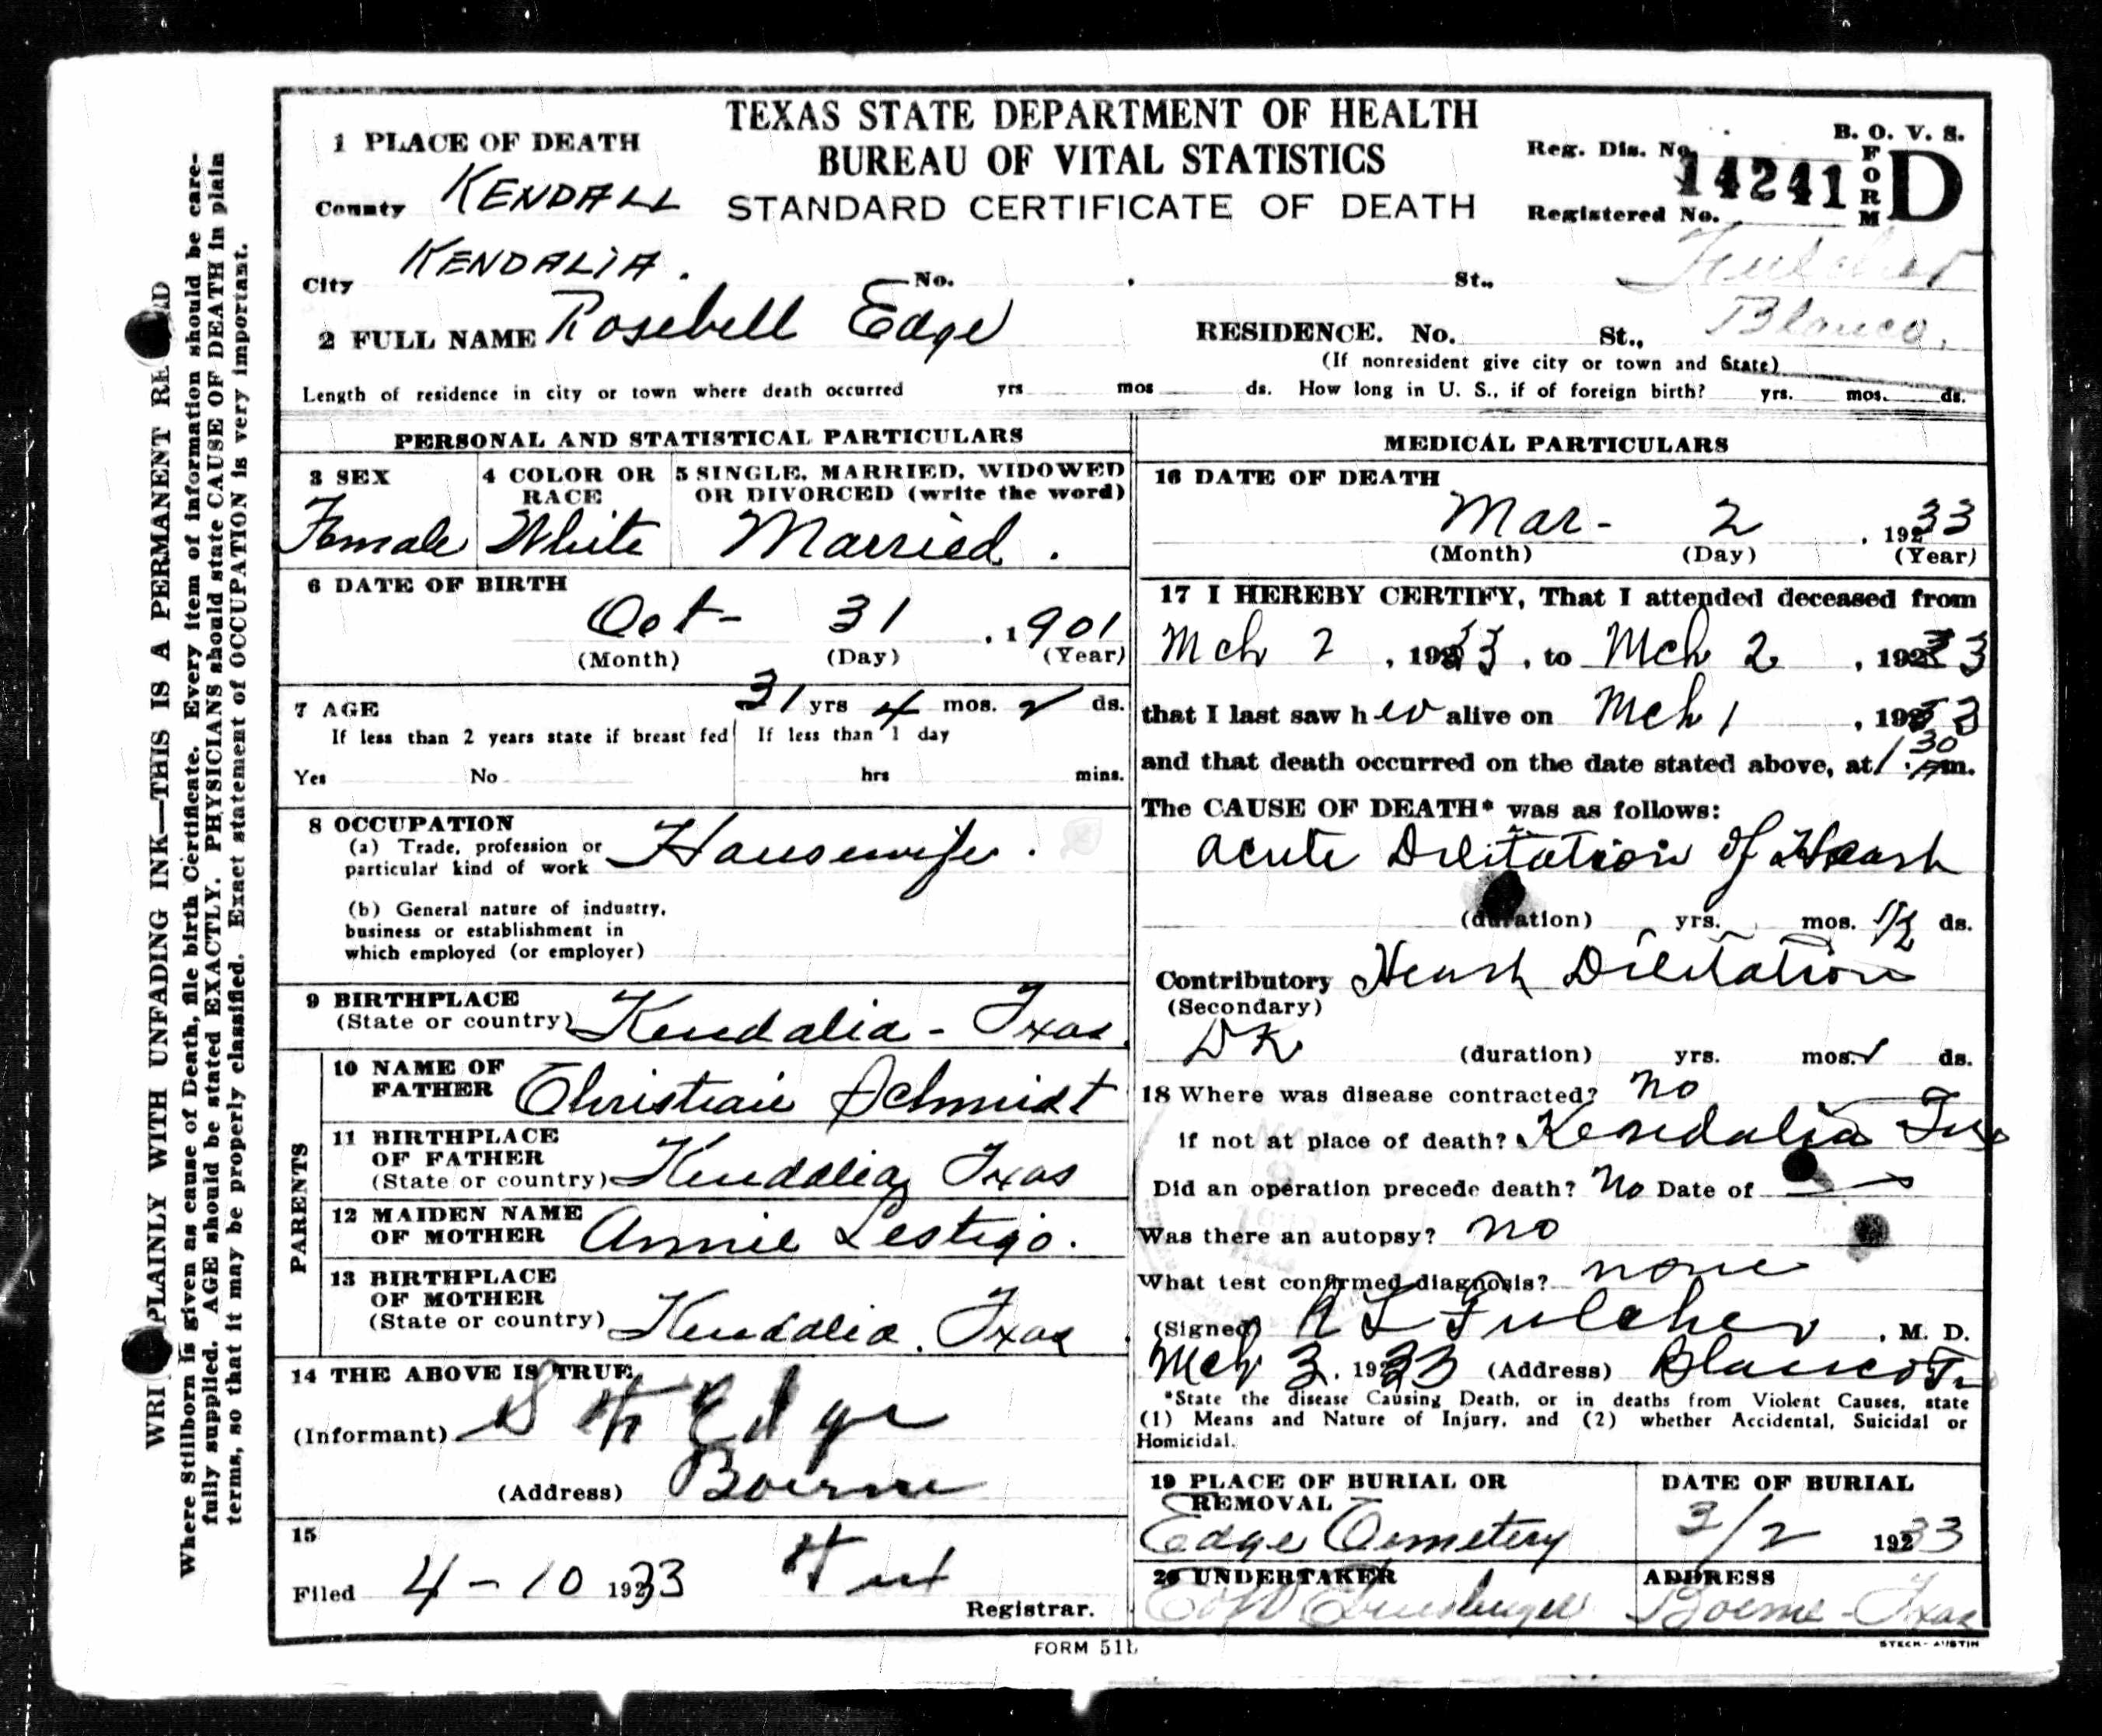 TEXAS STATE DEPARTMENT OF HEALTH
BUREAU OF VITAL STATISTICS
STANDARD CERTIFICATE OF DEATH
B. O. V. S.
FORM D
Reg. Dis. No.
14241
Registered No.
1 PLACE OF DEATH
County KENDALL
City KENDALIA. No. St.,
Blanco.
2 FULL NAME Rosebell Edge RESIDENCE. No. St.,
(If nonresident give city or town and State)
Length of residence in city or town where death occurred yrs mos ds. How long in U. S., if of foreign birth? yrs. mos. ds.
PERSONAL AND STATISTICAL PARTICULARS
3 SEX
Female
4 COLOR OR RACE
White
5 SINGLE, MARRIED, WIDOWED
OR DIVORCED (write the word)
Married.
6 DATE OF BIRTH
Oct- 31, 1901
(Month) (Day) (Year)
7 AGE 31 yrs 4 mos. 2 ds.
If less than 2 years state if breast fed If less than 1 day
Yes No hrs mins.
8 OCCUPATION
(a) Trade, profession or
particular kind of work Housewife.
(b) General nature of industry,
business or establishment in
which employed (or employer)
9 BIRTHPLACE
(State or country) Kendalia - Texas
PARENTS
10 NAME OF
FATHER Christian Schmidt
11 BIRTHPLACE
OF FATHER
(State or country) Kendalia, Texas
12 MAIDEN NAME
OF MOTHER Annie Lestigo.
13 BIRTHPLACE
OF MOTHER
(State or country) Kendalia, Texas
14 THE ABOVE IS TRUE
(Informant) Edge
(Address) Boerne
15
Filed 4-10 1933
Registrar.
MEDICAL PARTICULARS
16 DATE OF DEATH
Mar- 2, 1933
(Month) (Day) (Year)
17 I HEREBY CERTIFY, That I attended deceased from
Mch 2, 1933, to Mch 2, 1933
that I last saw her alive on Mch 1, 1933
and that death occurred on the date stated above, at 1:30 Am.
The CAUSE OF DEATH* was as follows:
Acute Dilitation of Heart
(duration) yrs. mos. 1/2 ds.
Contributory Heart Dilitation
(Secondary)
DK (duration) yrs. mos. ds.
18 Where was disease contracted? No
If not at place of death? Kendalia Tex
Did an operation precede death? No Date of
Was there an autopsy? no
What test confirmed diagnosis? none
(Signed) Fulcher, M. D.
Mch 3, 1933 (Address) Blanco Tx
*State the disease Causing Death, or in deaths from Violent Causes, state
(1) Means and Nature of Injury, and (2) whether Accidental, Suicidal or
Homicidal.
19 PLACE OF BURIAL OR
REMOVAL
Edge Cemetery
DATE OF BURIAL
3/2 1933
20 UNDERTAKER
ADDRESS
Boerne - Texas
FORM 511
STECK-AUSTIN
WRITE PLAINLY WITH UNFADING INK—THIS IS A PERMANENT RECORD
Where Stillborn is given as cause of Death, file birth Certificate. Every item of information should be care-
fully supplied. AGE should be stated EXACTLY. PHYSICIANS should state CAUSE OF DEATH in plain
terms, so that it may be properly classified. Exact statement of OCCUPATION is very important.